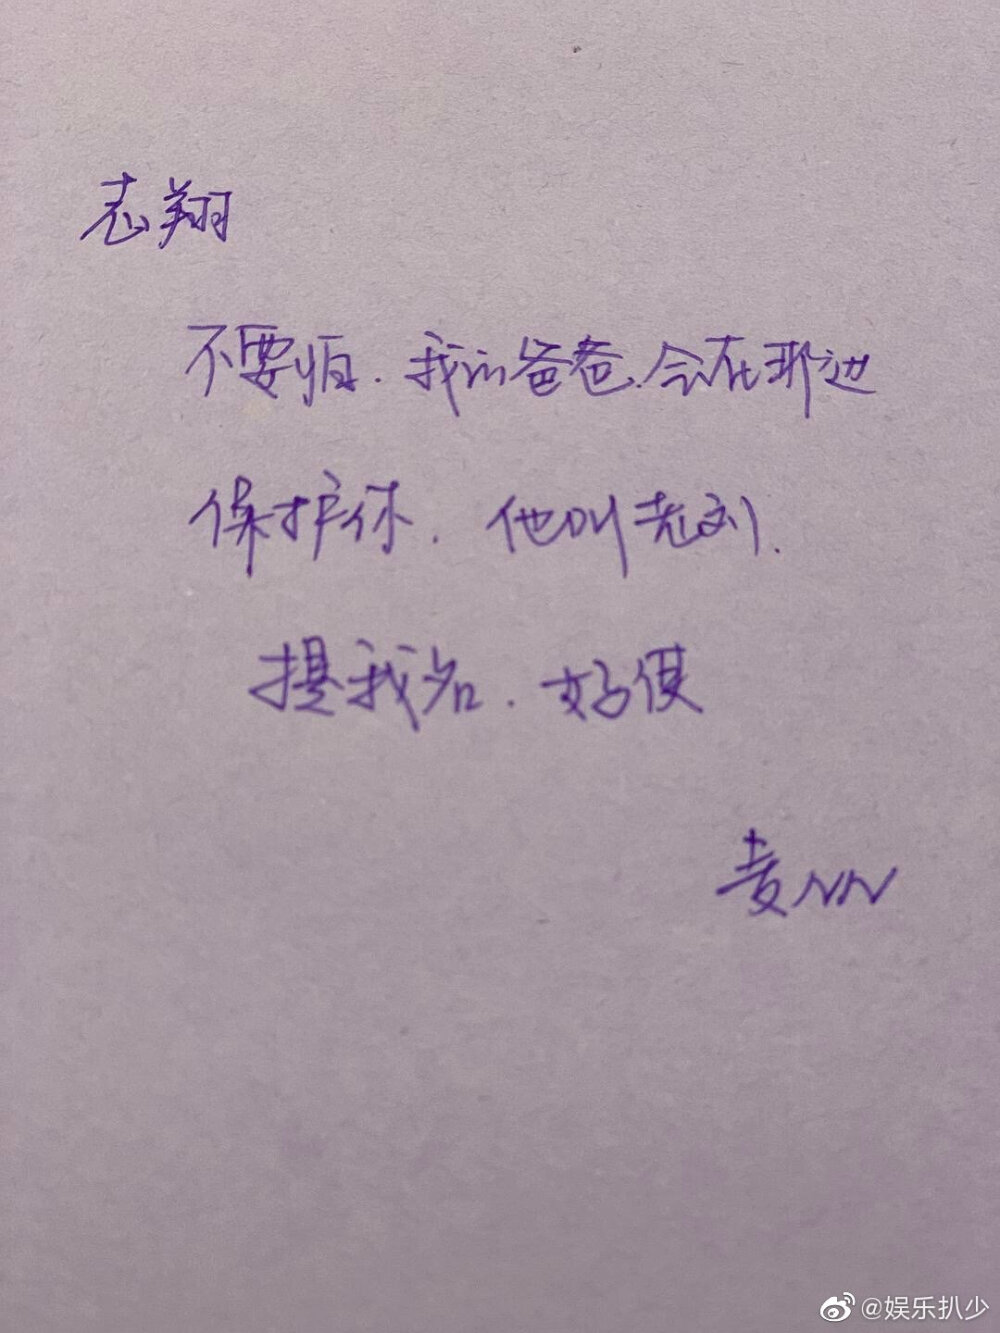 志翔
不要怕.我的爸爸.会在那边
保护你.他叫老刘.
提我名.好使
麦NN
@娱乐扒少